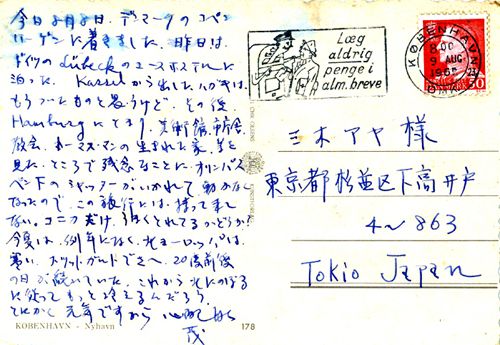 今日8月8日、デンマークのコペン
ハーゲンに着きました。昨日は、
ドイツのLübeckのユースホステルに
泊った。Kasselから出したハガキは
もうついたものと思うけど、その後、
Hamburgにとまり、美術館、市庁舎、
教会、トーマス・マンの生まれた家、等を
見た。ところで残念なことに、オリンパス
ペンFのシャッターがいかれて動かなく
なったので、この旅行には、持って来
ない。コニカだけ。うまくとれてるかどうか?
今夏は、例年になく、北ヨーロッパは、
寒い。
20度前後
の日が続いていた。これから北にのぼる
に従ってもっと冷えるんだろう。
とにかく元気ですから心配なく
茂
KØBENHAVN - Nyhavn
178
Læg
aldrig
penge i
alm. breve
KØBENHAVN
8.00
9. AUG.
1968
OMK.
50
三木アヤ様
東京都杉並区下高井戸
4~863
Tokio Japan